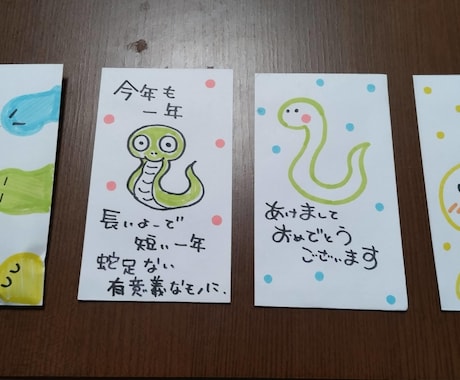 今年も
一年
長いよーで
短い一年
蛇足ない
有意義なモノに.
あけまして
おめでとう
ございます